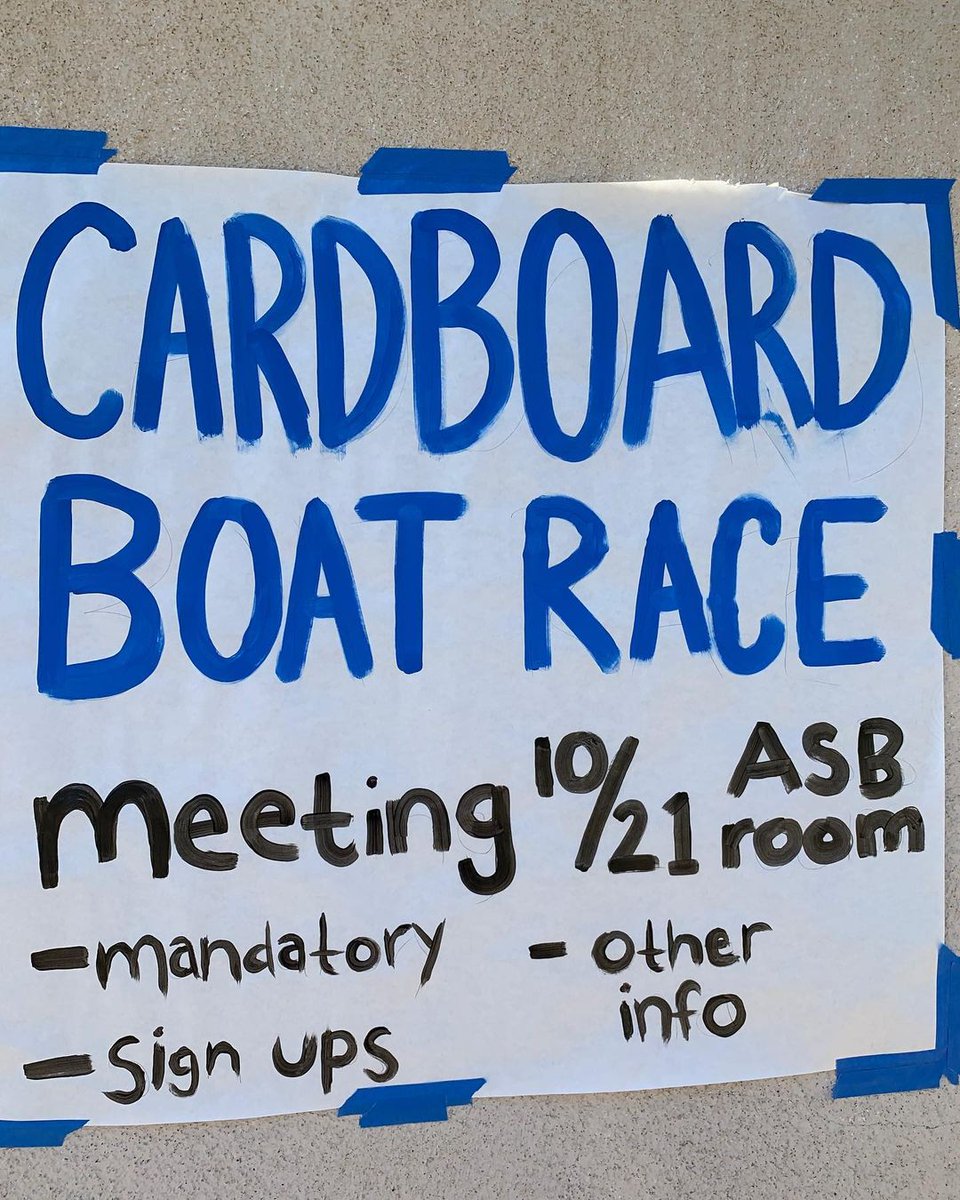 CARDBOARD
BOAT RACE
meeting 10/21 ASB room
- mandatory
- sign ups
- other
info